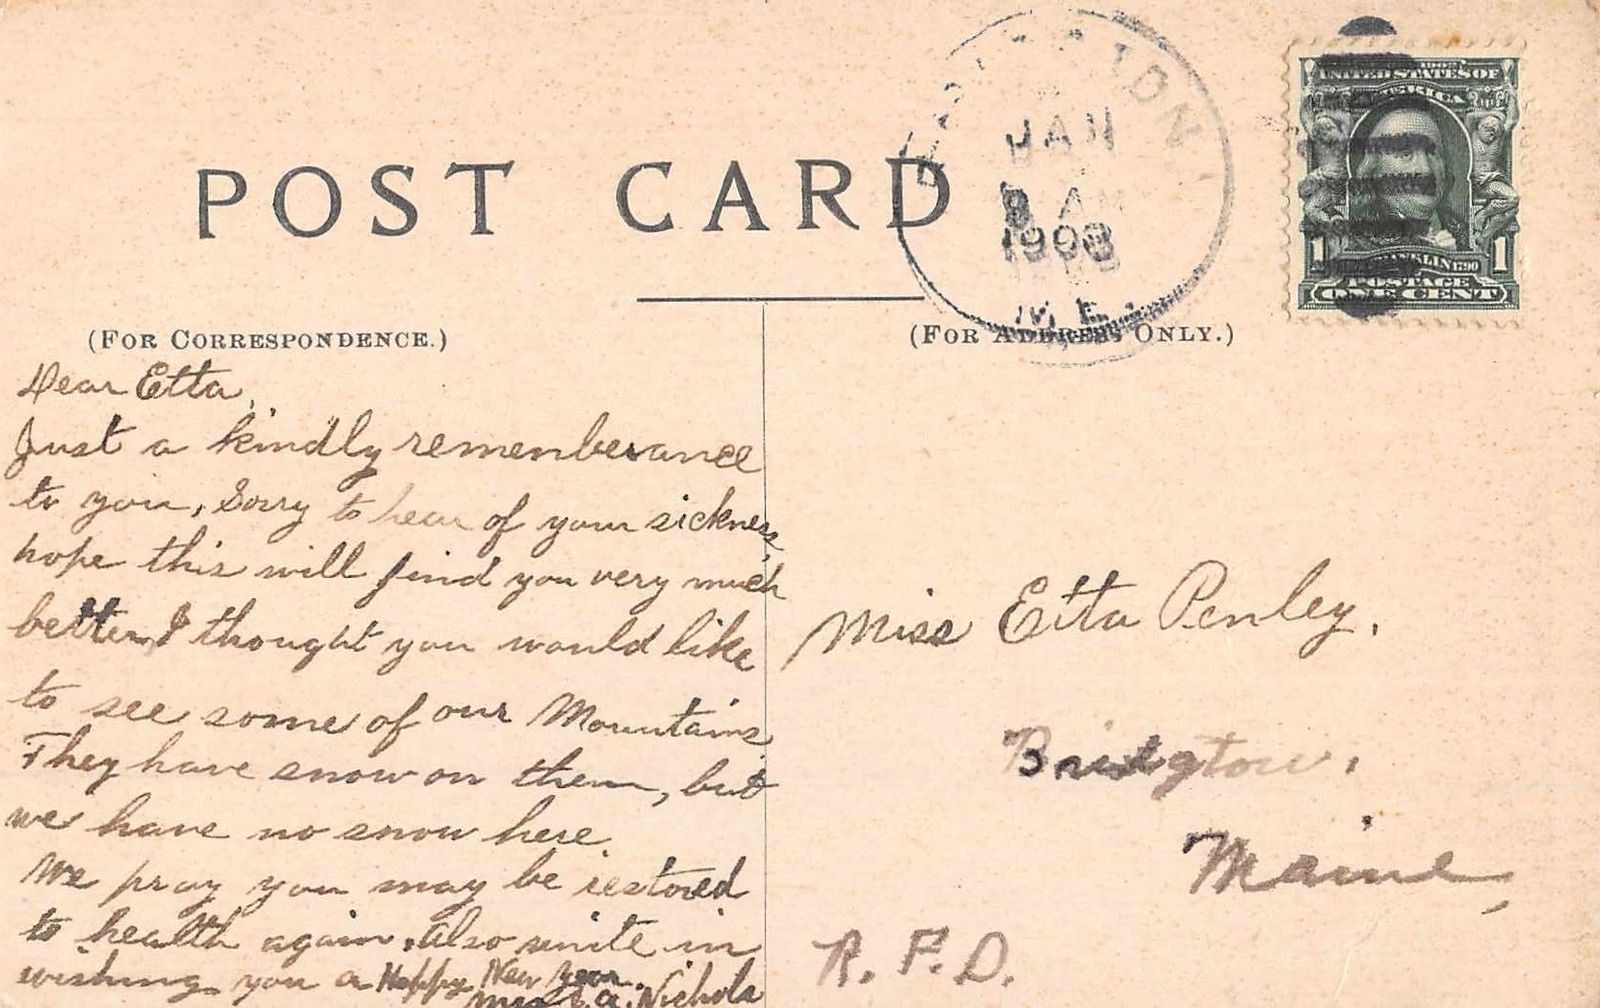 POST CARD
JAN
8 AM
1908
ME.
1902
UNITED STATES OF
AMERICA
1 FRANKLIN 1790 1
POSTAGE
ONE CENT
(FOR CORRESPONDENCE.)
(FOR ADDRESS ONLY.)
Dear Etta,
Just a kindly remenberance
to you. Sorry to hear of your sickness
hope this will find you very much
better, I thought you would like
to see some of our Mountains
They have snow on them, but
we have no snow here.
We pray you may be restored
to health again. Also unite in
wishing you a Happy New Year.
Nichols
Miss Etta Penley.
Bridgton.
Maine,
R. F. D.